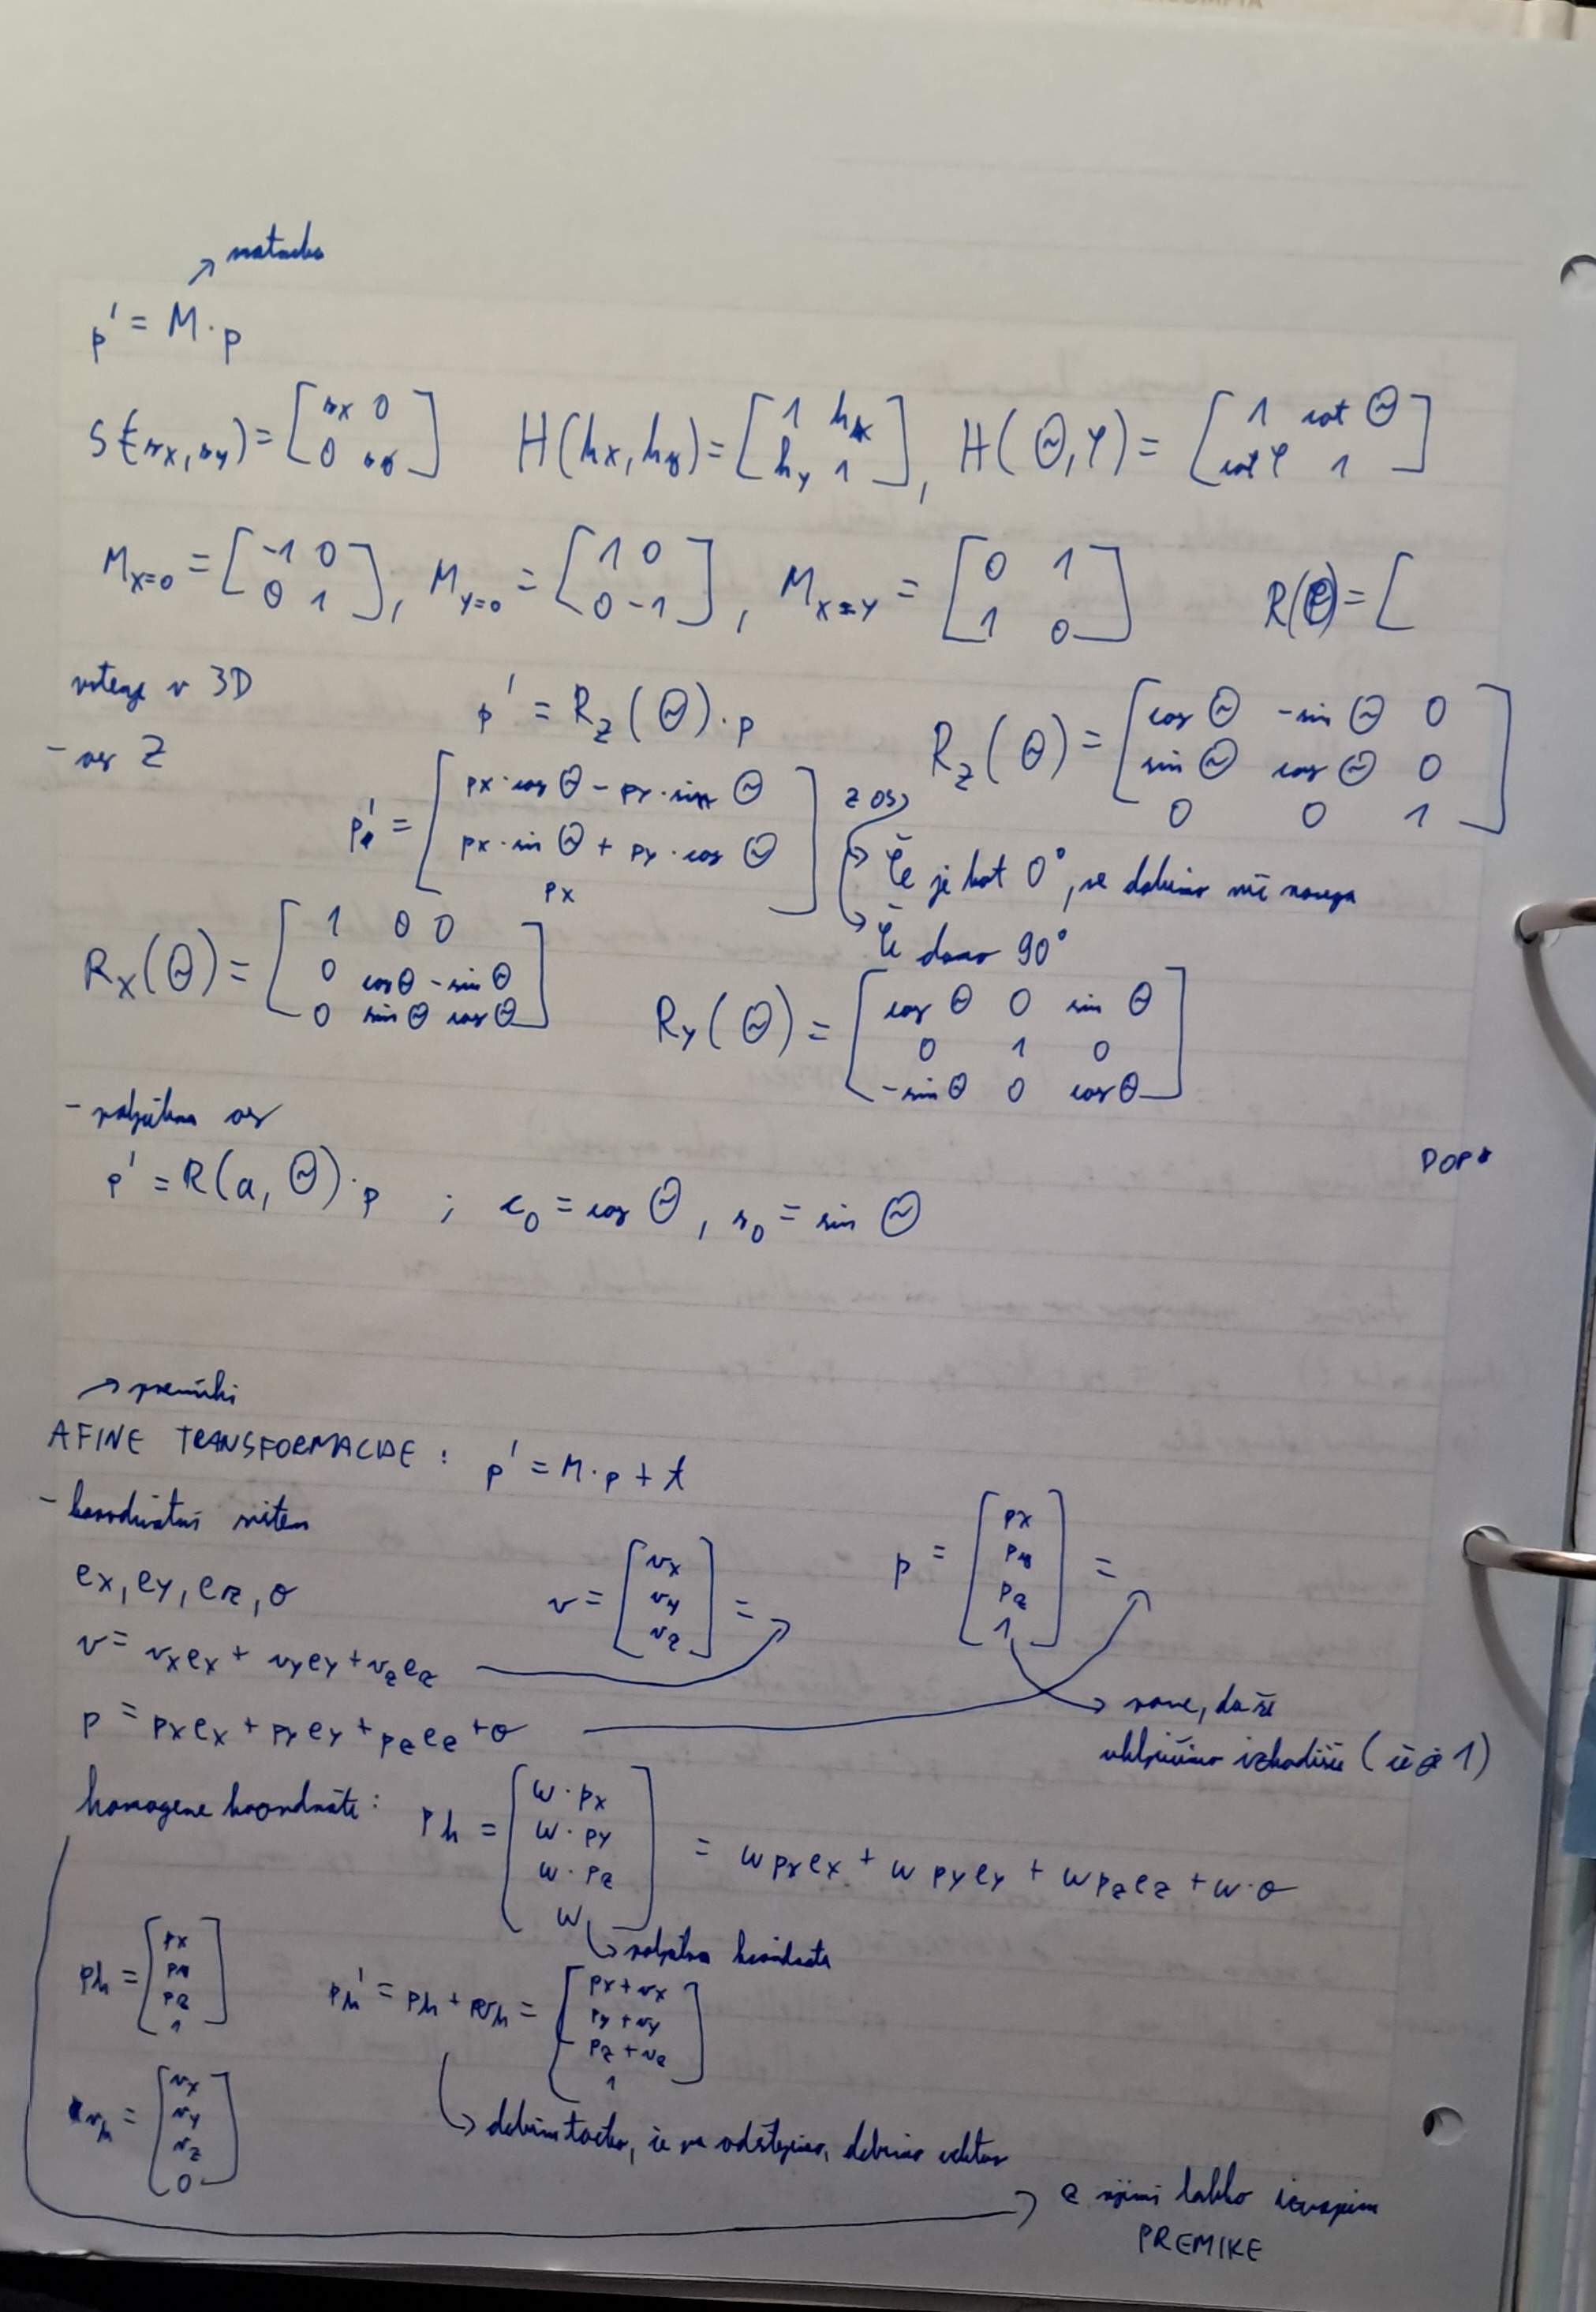 matrika
p' = M · p
S(sx, sy) = [sx 0; 0 sy]   H(hx, hy) = [1 hx; hy 1], H(Θ, φ) = [1 cot Θ; cot φ 1]
M x=0 = [-1 0; 0 1], M y=0 = [1 0; 0 -1], M x=y = [0 1; 1 0]   R( ) = [
vrtenje v 3D
- os Z
p' = Rz(Θ) · p   Rz(Θ) = [cos Θ -sin Θ 0; sin Θ cos Θ 0; 0 0 1]
p' = [px · cos Θ - py · sin Θ; px · sin Θ + py · cos Θ; px]
z os
Če je kot 0°, ne dobimo nič novega
Če damo 90°
Rx(Θ) = [1 0 0; 0 cos Θ -sin Θ; 0 sin Θ cos Θ]
Ry(Θ) = [cos Θ 0 sin Θ; 0 1 0; -sin Θ 0 cos Θ]
- poljubna os
DOP
p' = R(a, Θ) · p ; c0 = cos Θ, s0 = sin Θ
→ premiki
AFINE TRANSFORMACIJE : p' = M · p + t
- koordinatni sistem
ex, ey, ez, o
v = [vx; vy; vz] =
p = [px; py; pz; 1] =
v = vxex + vyey + vzez
p = pxex + pyey + pzez + o
→ pove, da si
vključimo izhodišče (če je 1)
homogene koordinate: ph = [w · px; w · py; w · pz; w] = wpxex + wpyey + wpzez + w · o
poljubna koordinata
ph = [px; py; pz; 1]
ph' = ph + vh = [px + vx; py + vy; pz + vz; 1]
vh = [vx; vy; vz; 0]
dobimo točko, če pa odštejemo, dobimo vektor
z njimi lahko izvajamo
PREMIKE